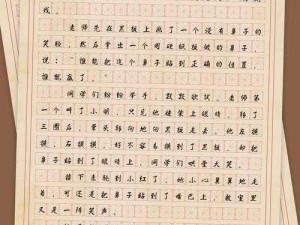 戏。
老师先在黑板上画了一个没有鼻子的
笑脸，然后拿出一个用硬纸板做的鼻子，
说：谁能把这个鼻子贴到正确的位置，
谁就赢了。
同学们纷纷举手，跃跃欲试。老师第
一个叫了小明，只见他蒙上眼睛，转了
三圈后，晕头转向地向黑板走去，他左摸
摸，右摸摸，终于摸到了黑板，却把
鼻子贴到了眼睛上，同学们哄堂大笑。
接下来轮到小红了，她小心翼翼地走
着，可还是把鼻子贴到了嘴巴上，教室里
又是一阵笑声。